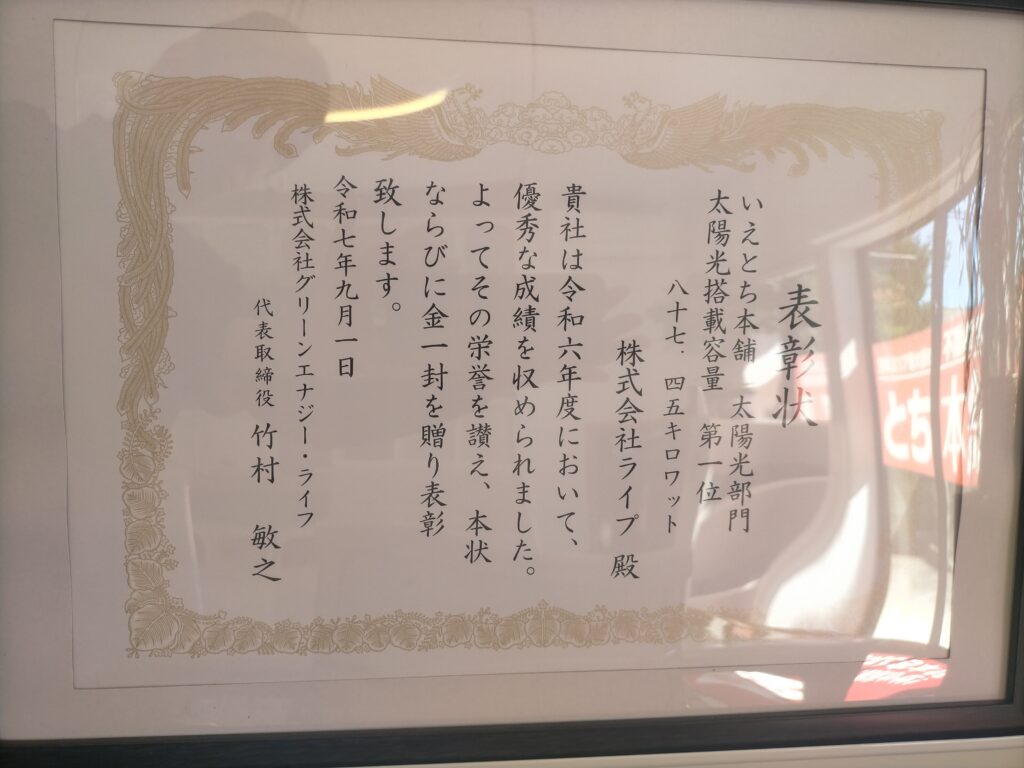 表彰状
いえとち本舗 太陽光部門
太陽光搭載容量 第一位
八十七．四五キロワット
株式会社ライブ 殿
貴社は令和六年度において、
優秀な成績を収められました。
よってその栄誉を讃え、本状
ならびに金一封を贈り表彰
致します。
令和七年九月一日
株式会社グリーンエナジー・ライフ
代表取締役 竹村 敏之
とち本